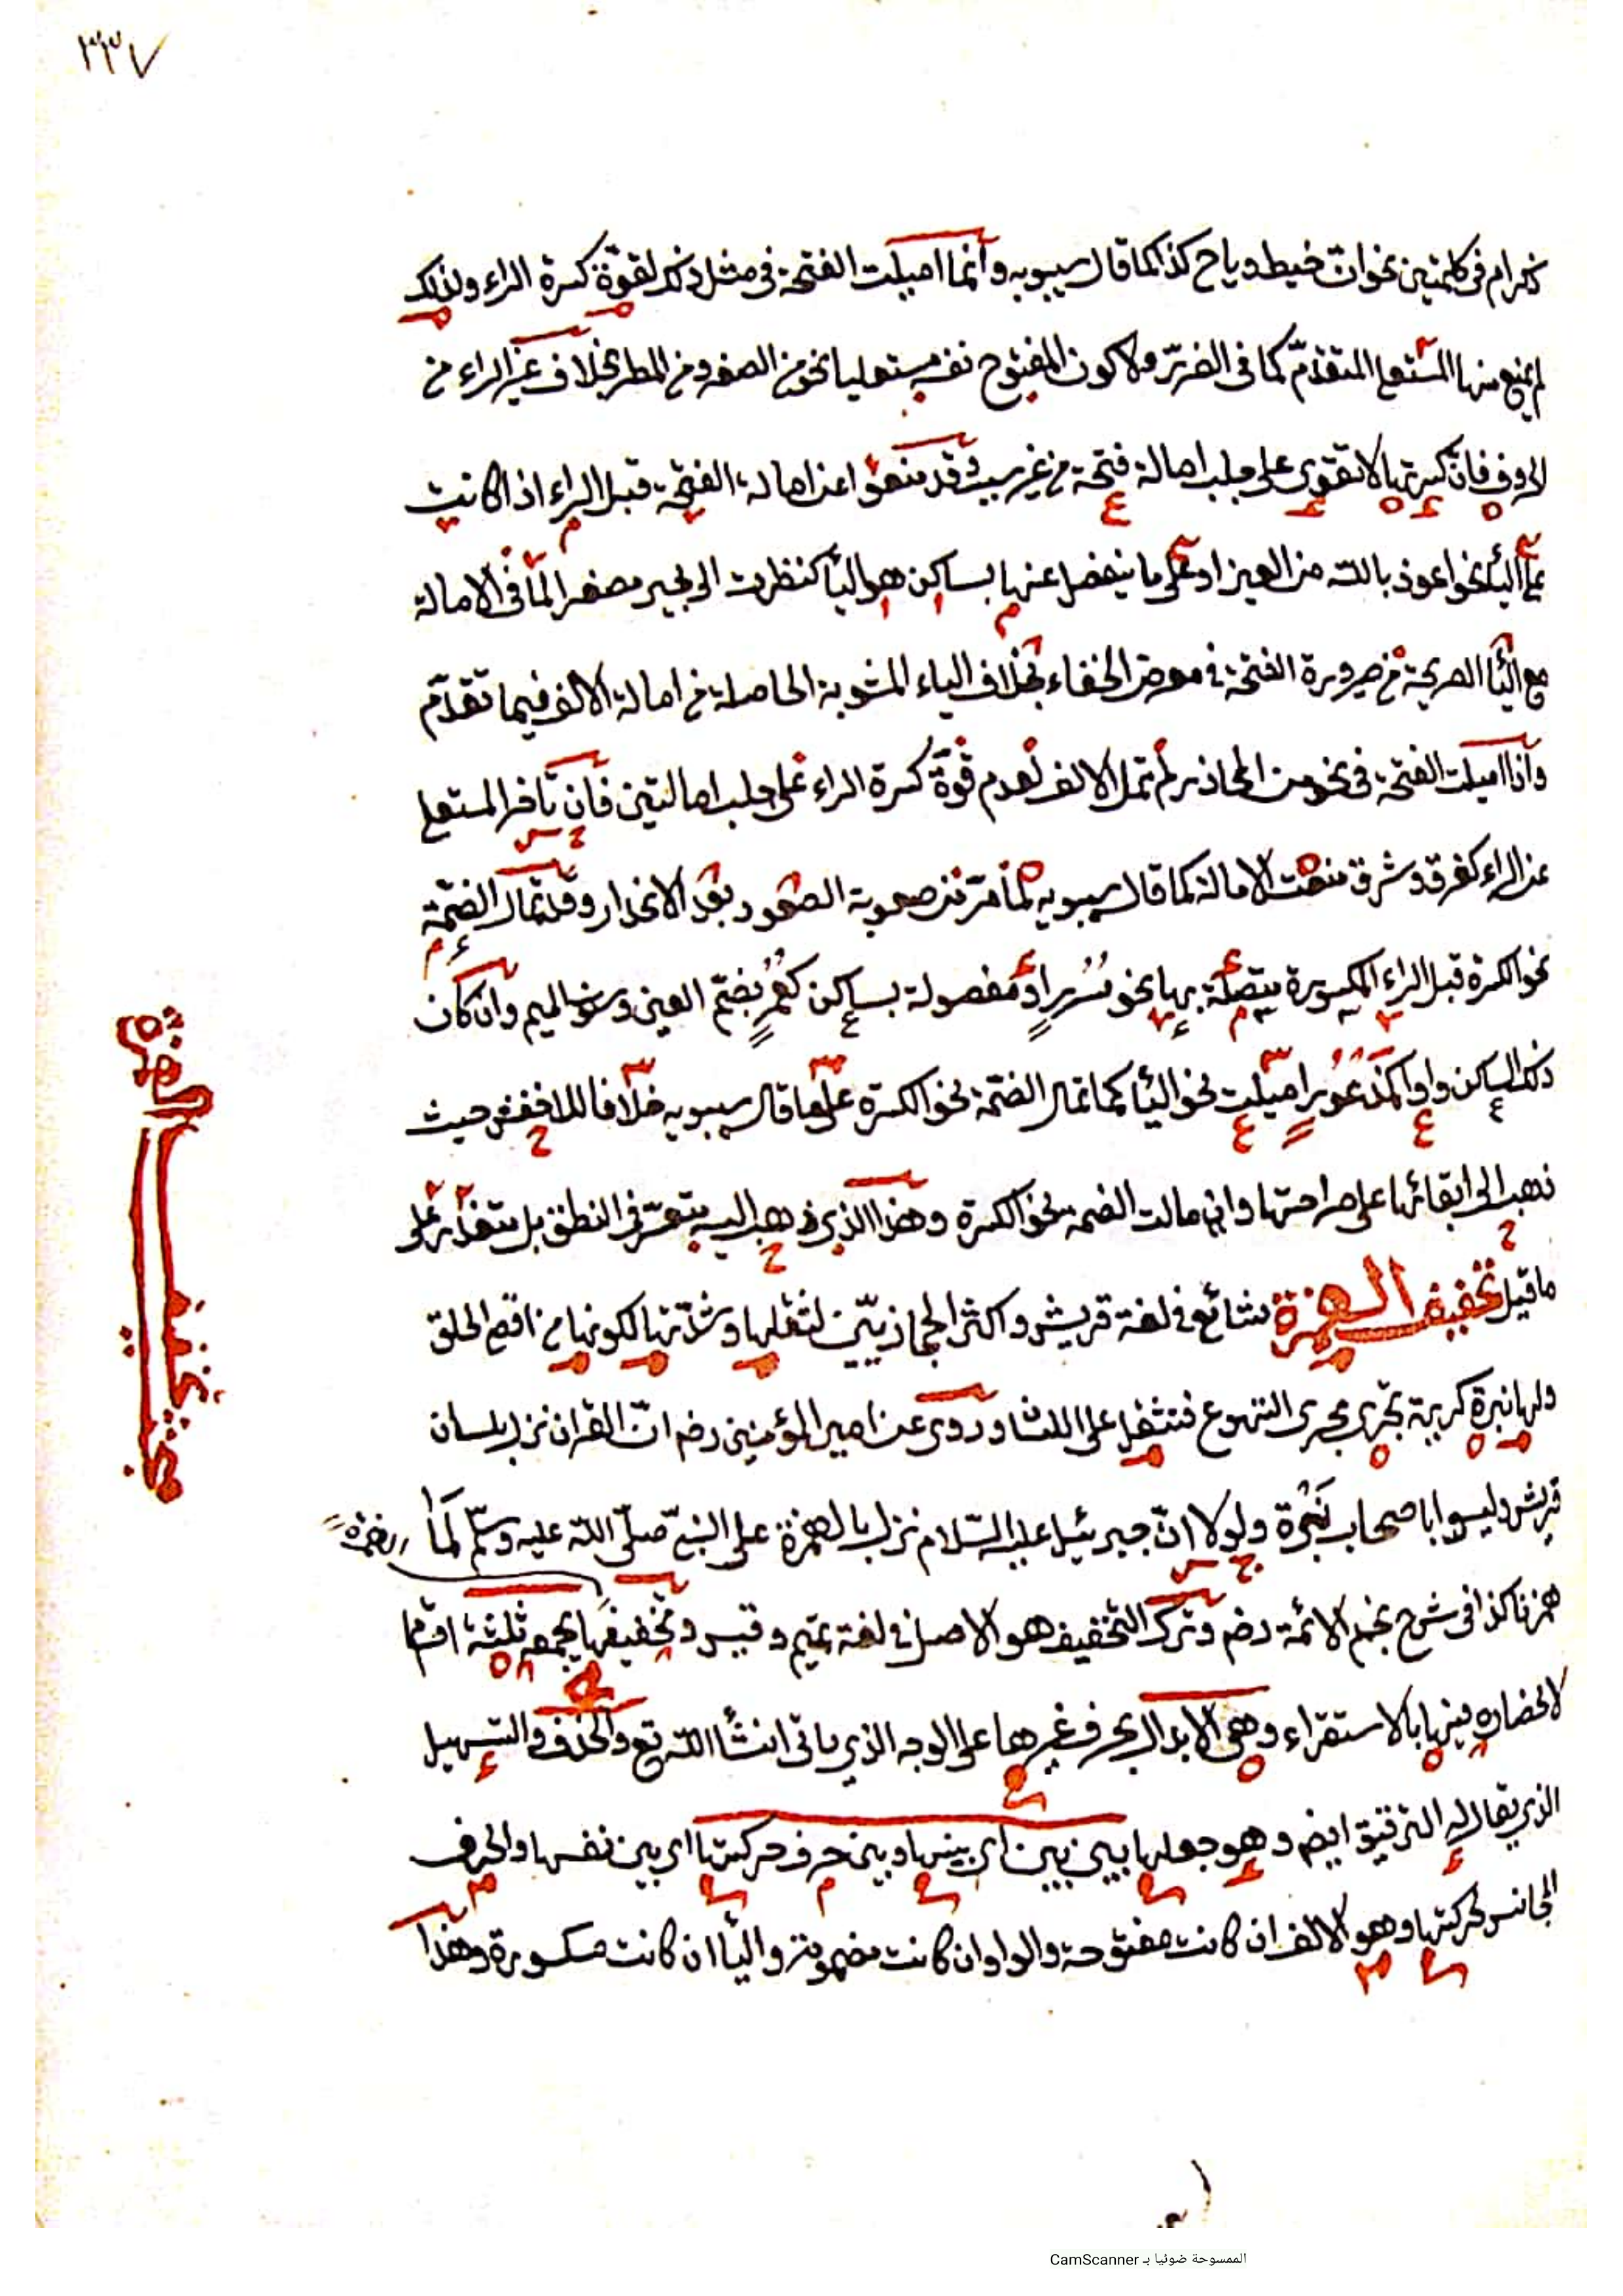 ٣٣٧
كرام في كلمتين نحو ان خبط رياح كذا كما قال سيبويه وانما اميلت الفتحة في مثل ذلك لقوة كسرة الراء ولذلك
لم يمنع منها المستعلي المتقدم كما في الضرر ولا كون المفتوح نفسه مستعليا نحو من الصغر ومن المطر بخلاف غير الراء من
الحروف فان كسرتها لا تقوى على جلب امالة فتحة من غير سبب وقد منعوا عن امالة الفتحة قبل الراء اذا كانت
على الياء نحو اعوذ بالله من الغير او على ما ينفصل عنها بساكن هو الياء كنظرت الى بجير مصغرا لما في الامالة
مع الياء الصريحة من صيرورة الفتحة في معرض الخفاء بخلاف الياء المشوبة الحاصلة من امالة الالف فيما تقدم
واذا اميلت الفتحة في نحو من المحاذر لم تمل الالف لعدم قوة كسرة الراء على جلب امالتين فان تأخر المستعلي
عن الراء كفرق وشرق منعت الامالة كما قال سيبويه لما مر من صعوبة الصعود بعد الانحدار وقد تمال الضمة
نحو الكسرة قبل الراء المكسورة متصلة بها نحو سُرُرٍ او مفصولة بساكن كعُمْرٍ بضم العين وسكون الميم وان كان
ذلك الساكن واوا كمذعورٍ اميلت نحو الياء كما تمال الضمة نحو الكسرة على ما قال سيبويه خلافا للاخفش حيث
ذهب الى ابقائها على صراحتها وان مالت الضمة نحو الكسرة وهذا الذي ذهب اليه يتعسر في النطق بل يتعذر على
ما قيل تخفيف الهمزة شائع في لغة قريش واكثر الحجازيين لثقلها وشدتها لكونها من اقصى الحلق
ولها نبرة كريهة تجري مجرى التهوع فتثقل على اللسان وروي عن امير المؤمنين رضه ان القرآن نزل بلسان
قريش وليسوا باصحاب نَبْرة ولولا ان جبرئيل عليه السلام نزل بالهمزة على النبي صلى الله عليه وسلم لما
همزنا كذا في شرح نجم الائمة رضه وترك التخفيف هو الاصل في لغة تميم وقيس وتخفيفها يجمعه ثلثة اقسام
لانحصاره فيها بالاستقراء وهي الابدال بحرف غيرها على الوجه الذي ياتي انشأ الله تع والحذف والتسهيل
الذي يقال له الترقيق ايضا وهو جعلها بين بين اي بينها وبين حرف حركتها اي بين نفسها والحرف
المجانس لحركتها وهو الالف ان كانت مفتوحة والواو ان كانت مضمومة والياء ان كانت مكسورة وهذا
مبحث تخفيف الهمزة
الممسوحة ضوئيا بـ CamScanner